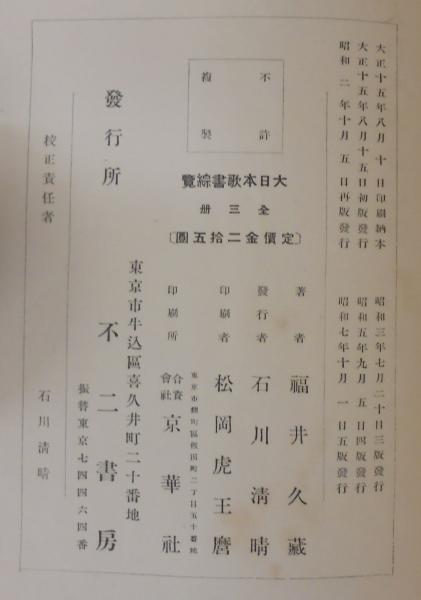 大正十五年八月十日印刷納本
大正十五年八月十五日初版發行
昭和二年十月五日再版發行
昭和三年七月二十日三版發行
昭和五年九月五日四版發行
昭和七年十月一日五版發行
不許
複製
大日本歌書綜覽
全三册
〔定價金二拾五圓〕
著者 福井久藏
發行者 石川淸晴
印刷者 松岡虎王麿
東京市麴町區飯田町二丁目五十番地
印刷所 合資會社 京華社
東京市牛込區喜久井町二十番地
發行所 不二書房
振替東京七四四六四番
校正責任者 石川淸晴